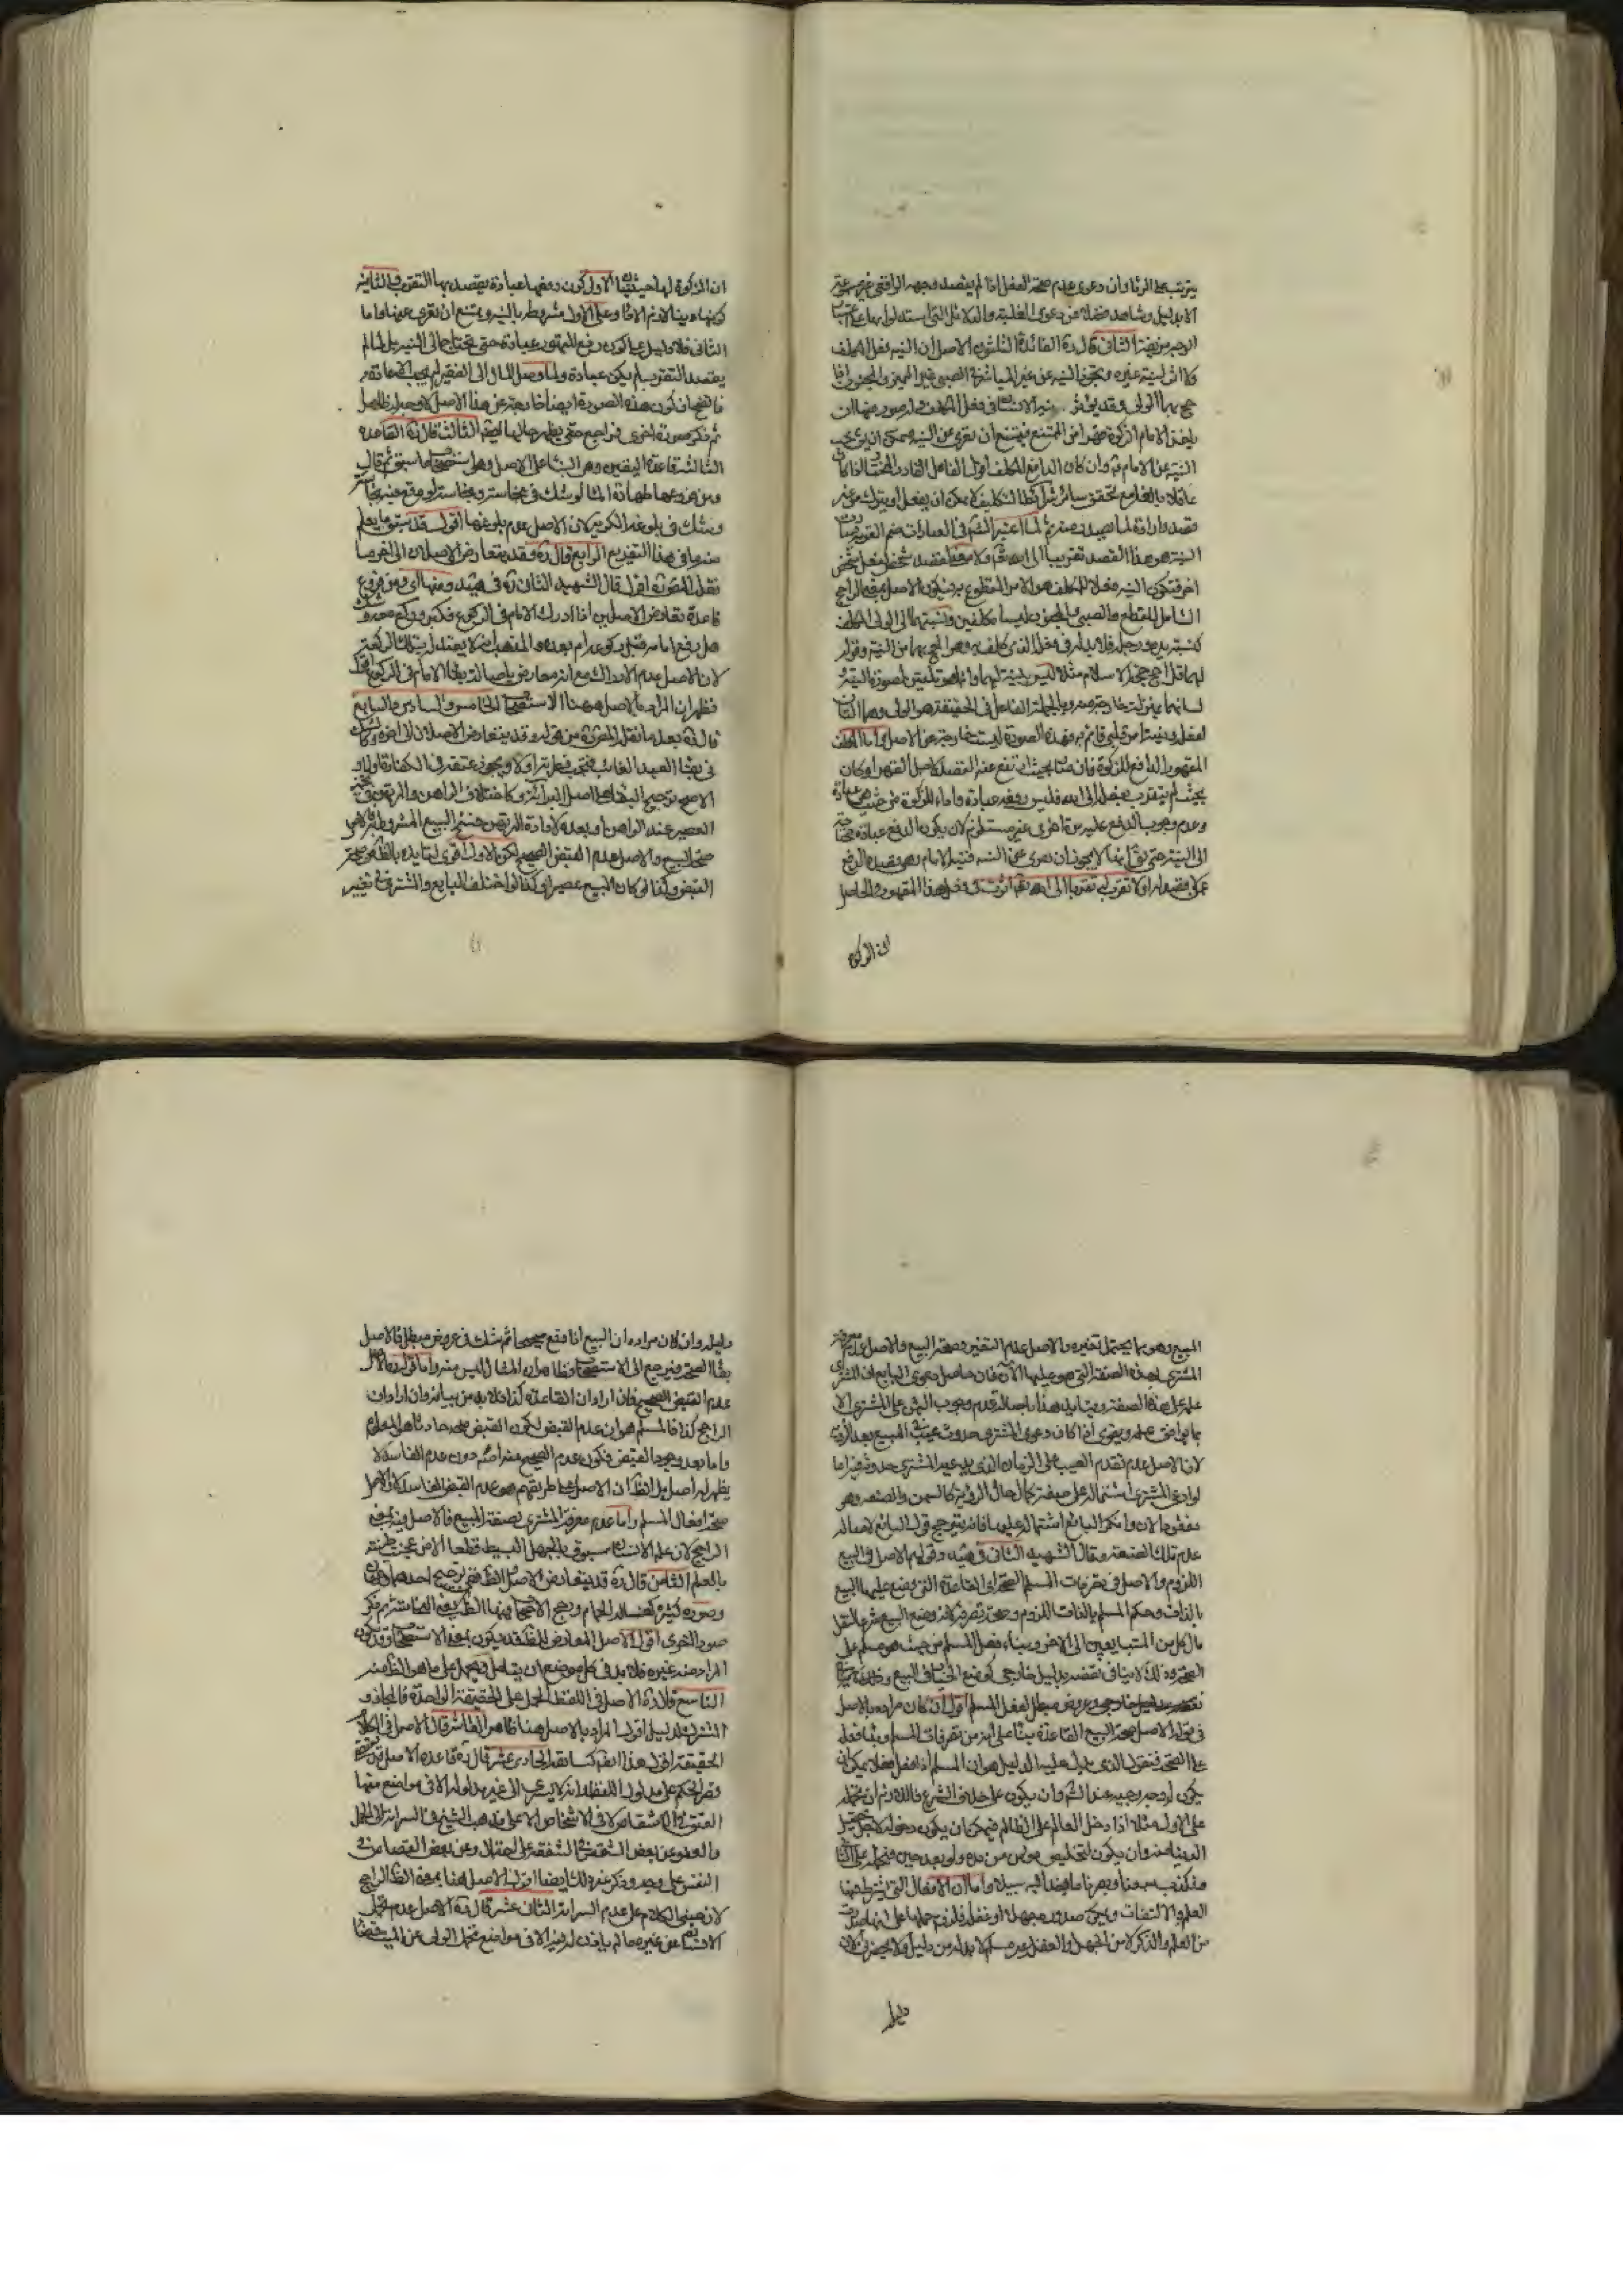 الا بدليل وشاهد فضلا عن دعوى الغلبة والدلائل التي استدلوا بها على
الثاني قال ره الفائدة الثلثون الاصل ان النية فعل المكلف
ولا اثر لنية غيره وتجوز النية عن غير المباشر في الصبي غير المميز والمجنون اذا
حج بهما الولي وقد
ياخذ الامام الزكوة قهرا من الممتنع فيمتنع ان تعرى عن النية
النية عن الامام وان كان الدافع المكلف اقول الفاعل القادر المختار اذا كان
عاقلا بالغا مع تحقق سائر شرائط التكليف لا يمكن ان يفعل او يترك من غير
قصد وارادة لما يصدر منه ثم لما اعتبر الشرع في العبادات ضم القربة
النية هو هذا القصد تقربا الى الله تعالى ولا معنى لقصد شخص لفعل شخص
اخر فتكون النية فعلا للمكلف هو الامر المقطوع به فيكون الاصل بمعنى الراجح
الشامل للمقطوع والصبي والمجنون ليسا مكلفين ونسبتهما الى الولي المكلف
لهما قل احج حج الاسلام مثلا ليس لنية لهما وانما هو تلقين لصورة النية
لفعل ونية امر قلبي قائم به فهذه الصورة ليست خارجة عن الاصل واما المكلف
المقهور الدافع للزكوة فان كان بحيث ارتفع عنه القصد كاصل القهر او كان
بحيث لم يتقرب بفعله الى الله فليس دفعه عبادة واداء للزكوة من حيث هي عبادة
وعدم وجوب الدفع عليه مرة اخرى غير مستلزم لان يكون الدفع عبادة محتاجة
الى النية حتى يقال انها لا يجوز ان تعرى عن النية فنية الامام وهو يقصد الدفع
لان الزكوة
ان الزكوة لها حيثيتان الاول كون دفعها عبادة يقصد بها التقرب والثانية
الثاني فلا دليل على كون دفع المقهور عبادة حتى تحتاج الى النية بل لما لم
يقصد التقرب لم يكن عبادة ولما وصل المال الى الفقير لم يجب الاعادة
فاتضح ان كون هذه الصورة ايضا خارجة عن هذا الاصل لا وجه له ظاهر
ثم ذكر صورة اخرى فراجع حتى يظهر حالها ايضا الثالث قال ره القاعدة
الثالثة قاعدة اليقين وهو البناء على الاصل وهي استصحاب ما سبق ثم قال
وشك في بلوغه الكرية لان الاصل عدم بلوغها اقول قد سبق ما يعلم
منه ما في هذا التفريع الرابع قال ره وقد يتعارض الاصلان الى اخر ما
نقله المص ره اقول قال الشهيد الثاني ره في تمهيد ومنها اي ومن فروع
قاعدة تعارض الاصلين اذا ادرك الامام في الركوع فكبر وركع معه وشك
هل رفع امامه قبل ركوعه ام بعده والمذهب انه لا يعتد له بتلك الركعة
لان الاصل عدم الادراك مع انه معارض باصالة بقاء الامام في الركوع
فظهر ان المراد بالاصل هو هنا الاستصحاب الخامس والسادس والسابع
قال ره بعد ما نقل المص ره من قوله وقد يتعارض الاصلان الى اخره وكالشك
في بقاء العبد الغائب فتجب فطرته اولا ويجوز عتقه في الكفارة اولا و
الاصح ترجيح البقاء على اصل البراءة وكاختلاف الراهن والمرتهن في تخمير
العصير عند الراهن او بعده لارادة المرتهن فسخ البيع المشروط به فالاصل
صحة البيع والاصل عدم القبض الصحيح لكن الاول اقوى لتايده بالظاهر من صحة
القبض وكذا لو كان المبيع عصيرا وكذا لو اختلف البايع والمشتري في تغيير
المبيع وهو مما يحتمل تغيره والاصل عدم التغير وصحة البيع والاصل عدم معرفة
المشتري بهذه الصفة التي هو عليها الآن فان حاصل دعوى البايع ان المشتري
علم على هذه الصفة ويتايد هذا باصالة عدم وجوب الثمن على المشتري الا
بما يوافق علمه ويقوى اذا كان دعوى المشتري حدوث عيب في المبيع بعد الرؤية
لان الاصل عدم تقدم العيب على الزمان الذي يدعيه المشتري حدوثه فيه اما
لو ادعى المشتري اشتماله على صفة كمال حال الرؤية كالسمن والصنعة وهو
مفقود الان وانكر البائع اشتماله عليها فانه يترجح قول البائع لاصالة
عدم تلك الصنعة وقال الشهيد الثاني في تمهيد وقولهم الاصل في البيع
اللزوم والاصل في تصرفات المسلم الصحة اي القاعدة التي وضع عليها البيع
بالذات وحكم المسلم بالذات اللزوم وصحة تصرفه لانه وضع البيع شرعا لنقل
مال كل من المتبايعين الى الاخر وبناء فعل المسلم من حيث هو مسلم على
الصحة وذلك لا ينافي نقضه بدليل خارجي كوضع الخيار في البيع
وعروض مبطل لفعل المسلم اقول ان كان مراده بالاصل
في قوله الاصل صحة البيع القاعدة بناء على انه من تصرفات المسلم وبناء فعله
على الصحة فنقول الذي دل عليه الدليل هو ان المسلم اذا فعل فعلا يمكن ان
يكون له وجه وجيه عند الشرع وان يكون على خلاف الشرع فاللازم ان يحمله
على الاول مثلا اذا دخل العالم على الظالم فيمكن ان يكون دخوله لاجل تحصيل
الدنيا منه وان يكون لتخليص مؤمن من يده ولو بعد حين فنحمله على الثاني
ونكذب سمعنا وبصرنا ما وجدنا اليه سبيلا واما ان الافعال التي يشترط فيها
العلم والالتفات ويمكن صدوره جهلا او غفلة فلزوم حملها على انها صدرت
من العلم والذكر لا من الجهل والغفلة غير مسلم لا بد له من دليل ولا يحضرني الان
دليله
دليله وان كان مراده ان البيع اذا وقع صحيحا ثم شك في عروض مبطل فالاصل
بقاء الصحة فيرجع الى الاستصحاب فظاهر ان المثال ليس منه واما قوله والاصل
عدم القبض الصحيح فان اراد ان القاعدة كذا فلا بد من بيانه وان اراد ان
الراجح كذا فالمسلم هو ان عدم القبض لكون القبض حادثا هو المعلوم
واما بعد وجود القبض فكون عدم الصحيح منه راجحا دون عدم الفاسد لا
يظهر له اصل بل الظاهر ان الاصل على طريقتهم هو عدم القبض الفاسد لان الاصل
صحة افعال المسلم واما عدم معرفة المشتري بصفة المبيع فالاصل فيه بمعنى
الراجح لان علم الانسان مسبوق بالجهل البسيط قطعا
بالعلم الثامن قال ره قد يتعارض الاصل والظاهر ففي ترجيح احدهما وجهان
وصوره كثيرة كغسالة الحمام ورجح الاصحاب فيها الظاهر وهو النجاسة ثم ذكر
صورا اخرى اقول الاصل المعارض للظاهر قد يكون بمعنى الاستصحاب وقد يكون
المراد منه غيره فلا بد في كل موضع ان يتامل ويحمل على ما هو الظاهر منه
التاسع قال ره الاصل في اللفظ الحمل على الحقيقة الواحدة فالمجاز و
المشترك لدليل اقول المراد بالاصل هنا ظاهر العاشر قال الاصل في الكلام
الحقيقة اقول هذا ايضا كسابقه الحادي عشر قال ره قاعدة الاصل تقتضي
قصر الحكم على مدلول اللفظ وانه لا يسري الى غير مدلوله الا في مواضع منها
العتق في الاشقاص لا في الاشخاص الا على مذهب الشيخ في السراية الى الحمل
والعفو عن بعض الشقص في الشفعة على احتمال وعن بعض القصاص في
النفس على وجه وذكر غير ذلك ايضا اقول الاصل هنا بمعنى الظاهر الراجح
لان مبنى الكلام على عدم السراية الثاني عشر قال ره الاصل عدم تحمل
الانسان عن غيره ما لم ياذن له فيه الا في مواضع تحمل الولي عن الميت قضاء